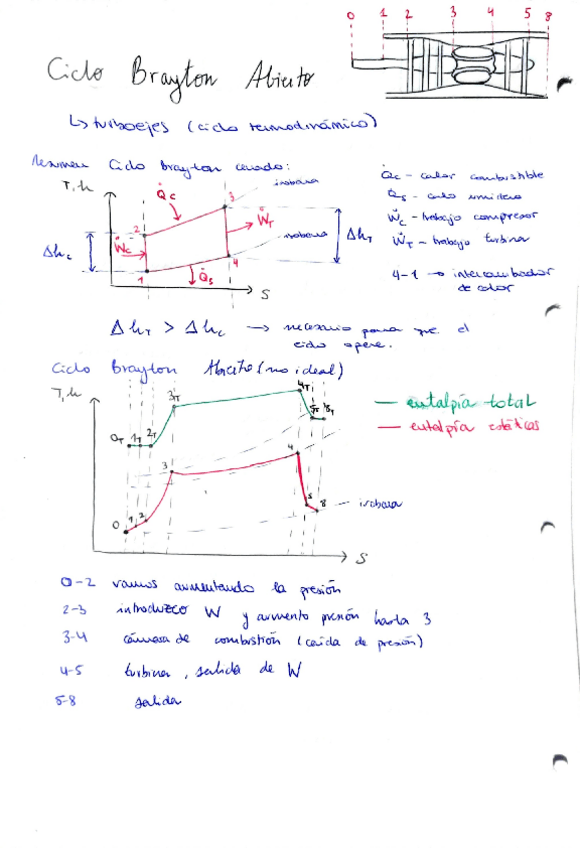 0 1 2 3 4 5 8
Ciclo Brayton Abierto
↳ turboejes (ciclo termodinámico)
Resumen Ciclo brayton cerrado:
T,h
Q̇c
3
isobara
2
Ẇc
ẆT
Δhc
ΔhT
isobara
1
Q̇s
4
S
Q̇c - calor combustible
Q̇s - calor sumidero
Ẇc - trabajo compresor
ẆT - trabajo turbina
4-1 → intercambiador
de calor
ΔhT > Δhc → necesario para que el
ciclo opere.
Ciclo Brayton Abierto (no ideal)
T,h
0T 1T 2T 3T 4T 5T 8T
0 1 2 3 4 5 8
isobara
S
— entalpía total
— entalpía estáticas
0-2 vamos aumentando la presión
2-3 introduzco W y aumento presión hasta 3
3-4 cámara de combustión (caída de presión)
4-5 turbina, salida de W
5-8 salida